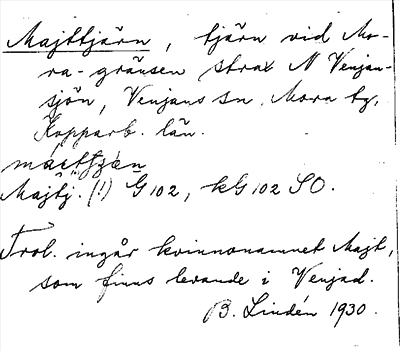 Majttjärn, tjärn vid Mo-
ra-gränsen strax N Venjan-
sjön, Venjans sn. Mora tg,
Kopparb. län.
Majtj. (!) G 102, kG 102 SO.
Trol. ingår kvinnonamnet Majt,
som finns levande i Venjad.
B. Lindén 1930.